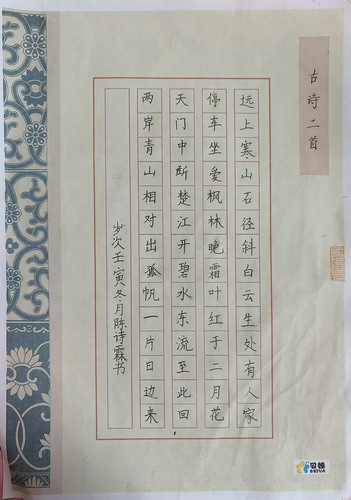 古诗二首
远上寒山石径斜白云生处有人家
停车坐爱枫林晚霜叶红于二月花
天门中断楚江开碧水东流至此回
两岸青山相对出孤帆一片日边来
岁次壬寅冬月陈诗霖书
贝婳